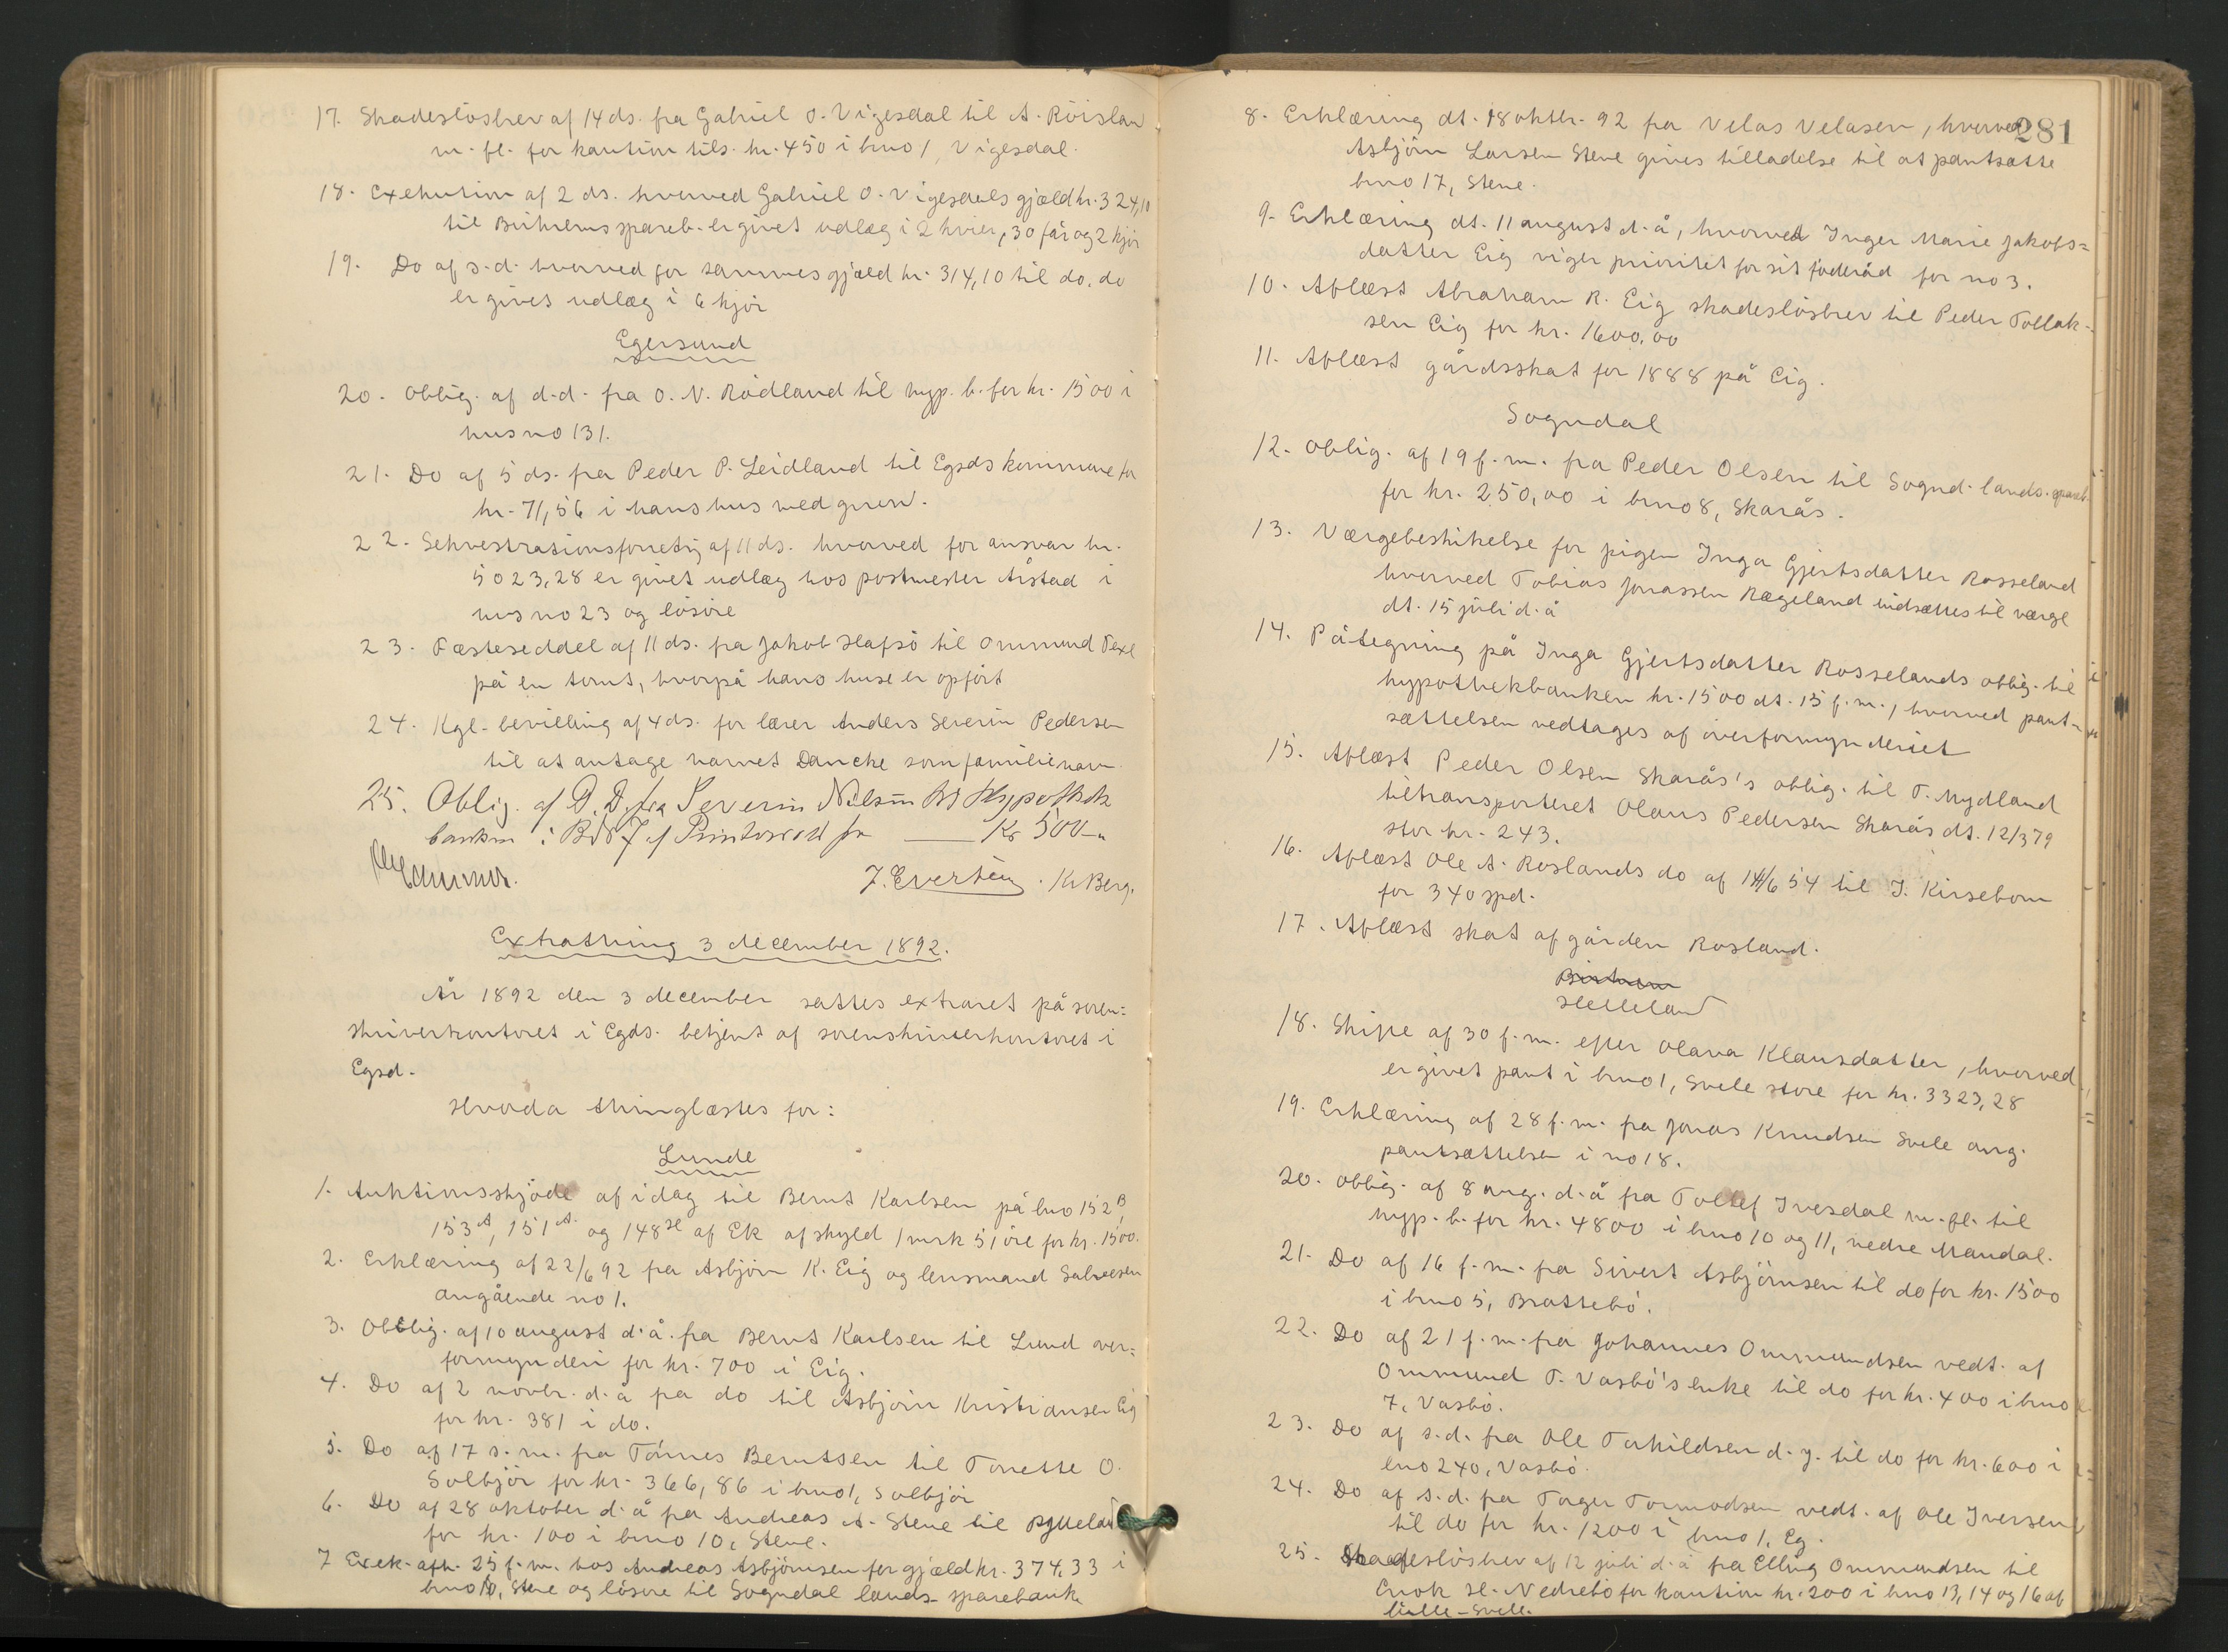 17. Skadeslösbrev af 14 ds. fra Gabriel O. Vigesdal til A. Röislan
m. fl. for kaution tils. kr. 450 i bno 1, Vigesdal.
18. Exekution af 2 ds. hvorved Gabriel O. Vigesdals gjæld kr. 324,10
til Birkrems spareb. er givet udlæg i 2 kvier, 30 får og 2 kjör
19. Do af s. d. hvorved for sammes gjæld kr. 314,10 til do. do
er givet udlæg i 6 kjör
Egersund
20. Oblig. af d. d. fra O. N. Rödland til hyp. b. for kr. 1500 i
hus no 131.
21. Do af 5 ds. fra Peder P. Leidland til Egsds kommune for
kr. 71,56 i hans hus ved gruen.
22. Sekvestrationsforretng af 11 ds. hvorved for ansvar kr.
5023,28 er givet udlæg hos postmester Årstad i
hus no 23 og lösöre
23. Fæsteseddel af 11 ds. fra Jakob Hafsö til Ommund Texe
på en tomt, hvorpå hans huse er opfört
24. Kgl. bevilling af 4 ds. for lærer Anders Severin Pedersen
til at antage navnet Dancke som familienavn
25. Oblig. af D. D. fra Severin Nilsen til Hypothek
banken i B No 7 af for Kr 500 "
J. Evertsen. K. Berg.
Extrathing 3 december 1892.
År 1892 den 3 december sattes extraret på soren=
skriverkontoret i Egds. betjent af sorenskriverkontoret i
Egsd.
Hvorda thinglæstes for:
Lunde
1. Auktionsskjöde af idag til Bernt Karlsen på lno 152 B,
153 A, 151 A. og 148 H af Ek af skyld 1 mrk 51 öre for kr. 1500.
2. Erklæring af 22/6 92 fra Asbjörn K. Eig og lensmand Salvesen
angående no 1.
3. Oblig. af 10 august d. å. fra Bernt Karlsen til Lund over=
formynderi for kr. 700 i Eig.
4. Do af 2 novbr. d. å fra do til Asbjörn Kristiansen Eig
for kr. 381 i do.
5. Do af 17 s. m. fra Tönnes Berntsen til Tonette O.
Solbjör for kr. 366,86 i bno 1, Solbjör
6. Do af 28 oktober d. å fra Andreas A. Stene til
for kr. 100 i bno 10, Stene.
7 Exek. afh. 25 f. m. hos Andreas Asbjörnsen for gjæld kr. 374,33 i
bno 10, Stene og lösöre til Sogndal lands. sparebank
281
8. Erklæring dt. 18 oktbr. 92 fra Velas Velasen, hvorved
Asbjörn Larsen Stene gives tilladelse til at pantsætte
bno 17, Stene.
9. Erklæring dt. 11 august d. å, hvorved Inger Marie Jakobs=
datter Eig viger prioritet for sit föderåd for no 3.
10. Aflæst Abraham R. Eig skadeslösbrev til Peder Tollak-
sen Eig for kr. 1600,00
11. Aflæst gårdsskat for 1888 på Eig.
Sogndal
12. Oblig. af 19 f. m. fra Peder Olsen til Sognd. lands. spareb.
for kr. 250,00 i bno 8, Skarås.
13. Værgebeskikelse for pigen Inga Gjertsdatter Rosseland
hvorved Tobias Jonassen Rægeland indsættes til værge
dt. 15 juli d. å
14. Påtegning på Inga Gjertsdatter Rosselands oblig. til
hypothekbanken kr. 1500 dt. 15 f. m., hvorved pant-
sættelsen vedtages af overformynderiet
15. Aflæst Peder Olsen Skarås's oblig. til T. Mydland
tiltransporteret Olaus Pedersen Skarås dt. 12/3 79
stor kr. 243.
16. Aflæst Ole A. Roslands do af 14/6 54 til J. Kirsebom
for 340 spd.
17. Aflæst skat af gården Rosland.
Birkrem
Helleland
18. Skifte af 30 f. m. efter Olava Klausdatter, hvorved
er givet pant i bno 1, Svele store for kr. 3323,28
19. Erklæring af 28 f. m. fra Jonas Knudsen Svele ang.
pantsættelsen i no 18.
20. Oblig. af 8 aug. d. å fra Tollef Ivesdal m. fl. til
hyp. b. for kr. 4800 i bno 10 og 11, nedre Maudal.
21. Do af 16 f. m. fra Sivert Asbjörnsen til do for kr. 1500
i bno 5, Brattebö.
22. Do af 21 f. m. fra Johannes Ommundsen vedt. af
Ommund T. Vasbö's enke til do for kr. 400 i bno
7, Vasbö.
23. Do af s. d. fra Ole Torkildsen d. y. til do for kr. 600 i
lno 240, Vasbö.
24. Do af s. d. fra Torger Tormodsen vedt. af Ole Iversen
til do for kr. 1200 i bno 1, Eg.
25. Skadeslösbrev af 12 juli d. å fra Elling Ommundsen til
Enok H. Nedrebö for kaution kr. 200 i bno 13, 14 og 16 af
lille-Svele.